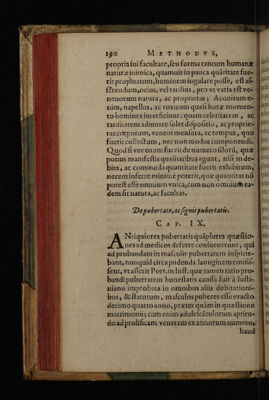 190 METHODVS,
propria sui facultate, seu forma tantum humanæ
naturæ inimica, quamuis in pauca quãtitate fue-
rit propinatum, hominem iugulare posse, est as-
serendum, ocius, vel tardius, pro vt varia est ve-
nenorum natura, ac proprietas; Aconitum e-
nim, napellus, ac toxicum quasi horæ momen-
to homines interficiunt: quam celeritatem, ac
tarditatem admittere solet dispositio, ac proprie-
tas corporum, veneni mensura, ac tempus, quo
fuerit collectum, nec non modus componendi.
Quod si venenum fuerit de numero illorũ, quæ
potius manifestis qualitatibus agunt, nisi in de-
bita, ac commoda quantitate fuerit exhibitum,
necem inferre minimè poterit, quæ quantitas nõ
potest esse omnium vnica, cum non omnium ea-
dem sit natura, ac facultas.
De pubertate, ac signis pubertatis.
CAP. IX.
ANtiquiores pubertatis quãplures quæstio-
nes ad medicos deferre consueuerunt, qui
ad probandam in masculis pubertatem inspicie-
bant, nunquid circa pudenda lanuginem emisis-
sent, vt asserit Port. in Inst. quæ tamen ratio pro-
bandi pubertatem honestatis caussa fuit à Iusti-
niano improbata in omnibus alijs debitationi-
bus, & statutum, masculos puberes esse exacto
decimo quarto anno, præter quàm in quæstione
matrimonij; cum enim adolescẽtulorum aptitu-
do ad prolificam venerem ex annorum numero,
haud